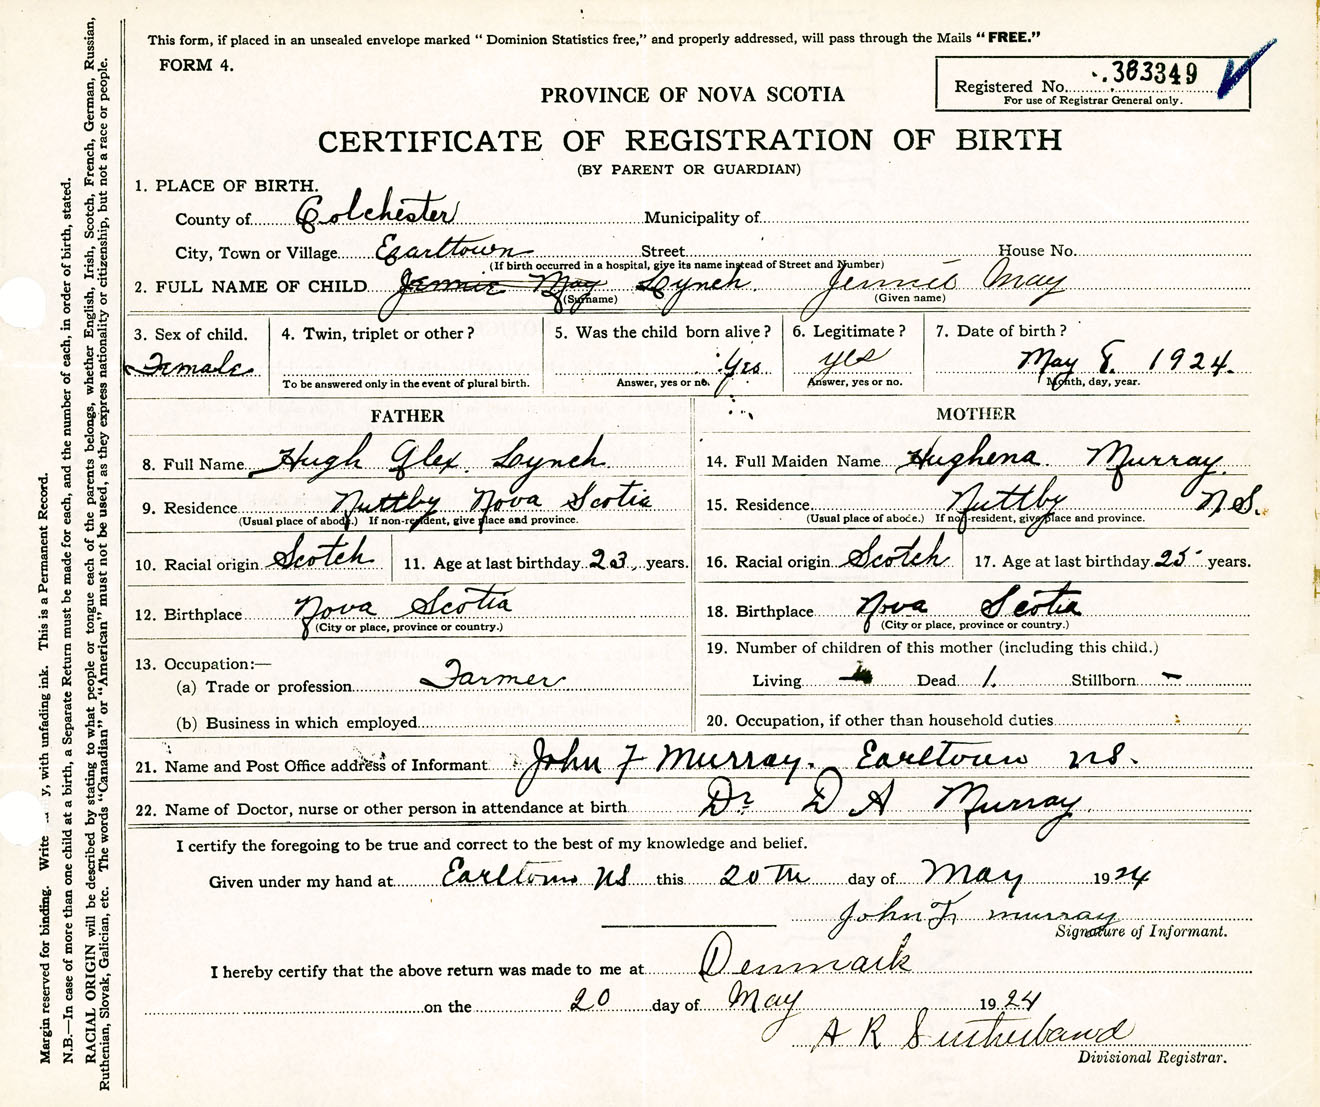 This form, if placed in an unsealed envelope marked "Dominion Statistics free," and properly addressed, will pass through the Mails "FREE."
FORM 4.
Registered No. 383349
For use of Registrar General only.
PROVINCE OF NOVA SCOTIA
CERTIFICATE OF REGISTRATION OF BIRTH
(BY PARENT OR GUARDIAN)
1. PLACE OF BIRTH.
County of Colchester Municipality of
City, Town or Village Earltown Street House No.
(If birth occurred in a hospital, give its name instead of Street and Number)
2. FULL NAME OF CHILD Jennie May Lynch Jennie May
(Surname) (Given name)
3. Sex of child. 4. Twin, triplet or other? 5. Was the child born alive? 6. Legitimate? 7. Date of birth?
Female Yes yes May 8. 1924.
To be answered only in the event of plural birth. Answer, yes or no. Answer, yes or no. Month, day, year.
FATHER MOTHER
8. Full Name Hugh Alex. Lynch 14. Full Maiden Name Hughena Murray.
9. Residence Nuttby Nova Scotia 15. Residence Nuttby N.S.
(Usual place of abode.) If non-resident, give place and province. (Usual place of abode.) If not-resident, give place and province.
10. Racial origin Scotch 11. Age at last birthday 23 years. 16. Racial origin Scotch 17. Age at last birthday 25 years.
12. Birthplace Nova Scotia 18. Birthplace Nova Scotia
(City or place, province or country.) (City or place, province or country.)
13. Occupation:— 19. Number of children of this mother (including this child.)
(a) Trade or profession Farmer Living Dead 1. Stillborn -
(b) Business in which employed 20. Occupation, if other than household duties
21. Name and Post Office address of Informant John F Murray. Earltown NS.
22. Name of Doctor, nurse or other person in attendance at birth Dr D A Murray
I certify the foregoing to be true and correct to the best of my knowledge and belief.
Given under my hand at Earltown NS this 20th day of May 1924
John F. Murray
Signature of Informant.
I hereby certify that the above return was made to me at Denmark
on the 20 day of May 1924
A R Sutherland
Divisional Registrar.
Margin reserved for binding. Write with unfading ink. This is a Permanent Record.
N.B.—In case of more than one child at a birth, a Separate Return must be made for each, and the number of each, in order of birth, stated.
RACIAL ORIGIN will be described by stating to what people or tongue each of the parents belongs, whether English, Irish, Scotch, French, German, Russian,
Ruthenian, Slovak, Galician, etc. The words "Canadian" or "American" must not be used, as they express nationality or citizenship, but not a race or people.